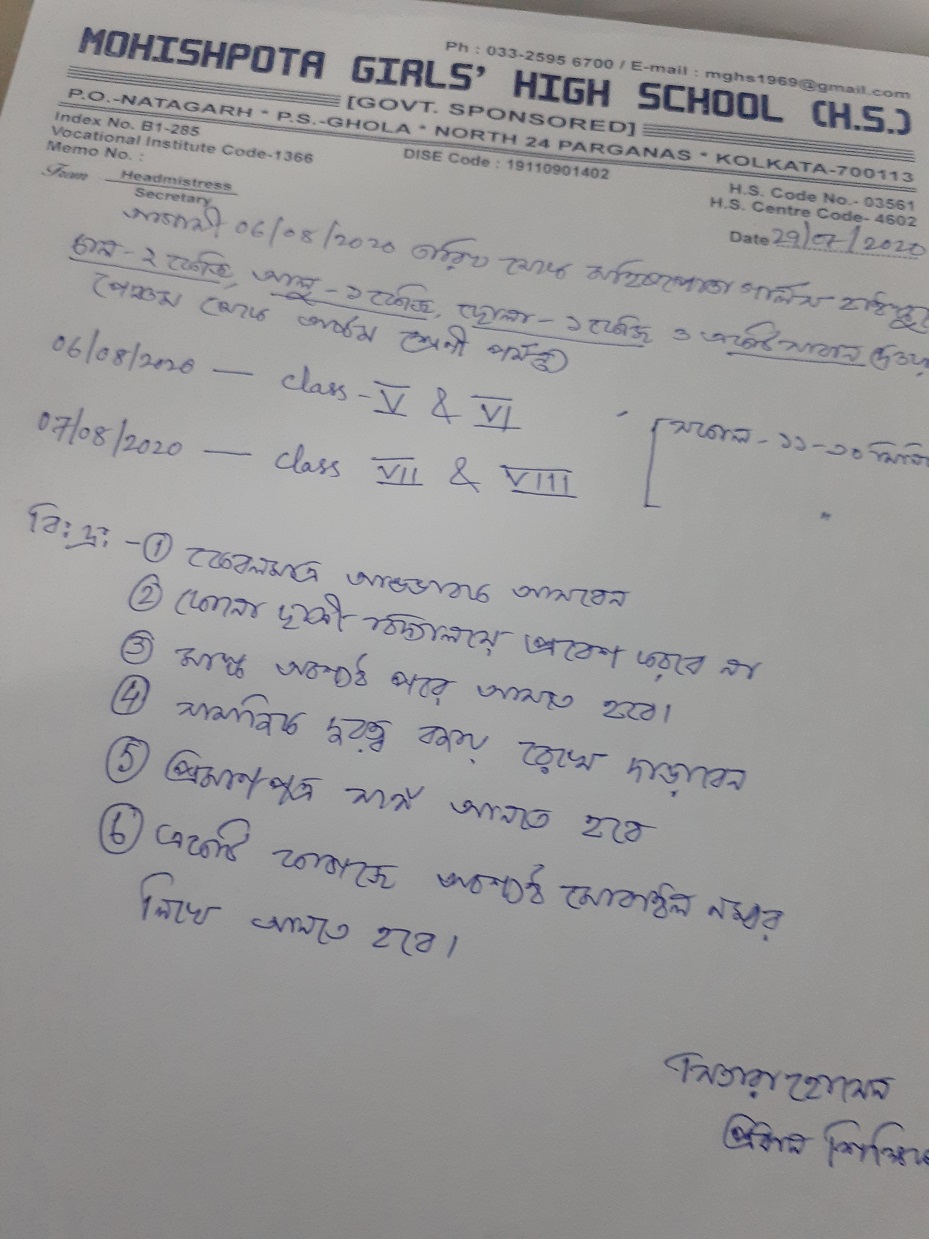 Ph : 033-2595 6700 / E-mail : mghs1969@gmail.com
MOHISHPOTA GIRLS' HIGH SCHOOL (H.S.)
[GOVT. SPONSORED]
P.O.-NATAGARH * P.S.-GHOLA * NORTH 24 PARGANAS * KOLKATA-700113
Index No. B1-285
Vocational Institute Code-1366
DISE Code : 19110901402
H.S. Code No.- 03561
Memo No. :
H.S. Centre Code- 4602
From Headmistress
Secretary
Date 29/07/2020
আগামী 06/08/2020 তারিখ থেকে মহিষপোতা গার্লস হাইস্কুলে
চাল - ২ কেজি, আলু - ১ কেজি, ছোলা - ১ কেজি ও একটি সাবান দেওয়া
পঞ্চম থেকে অষ্টম শ্রেণী পর্যন্ত
06/08/2020 — Class - V & VI
[সকাল - ১১-৩০ মিনি
07/08/2020 — Class VII & VIII "
বিঃ দ্রঃ - ① কেবলমাত্র অভিভাবক আসবেন
② কোনো ছাত্রী বিদ্যালয়ে প্রবেশ করবে না
③ মাস্ক অবশ্যই পরে আসতে হবে।
④ সামাজিক দূরত্ব বজায় রেখে দাঁড়াবেন
⑤ প্রমাণপত্র সঙ্গে আনতে হবে
⑥ একটি কাগজে অবশ্যই মোবাইল নম্বর
লিখে আনতে হবে।
প্রধান শিক্ষিকা